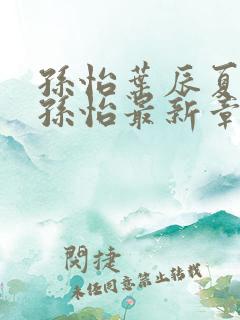 孫怡葉辰夏
孫怡最新章
閔捷
未经同意禁止转载